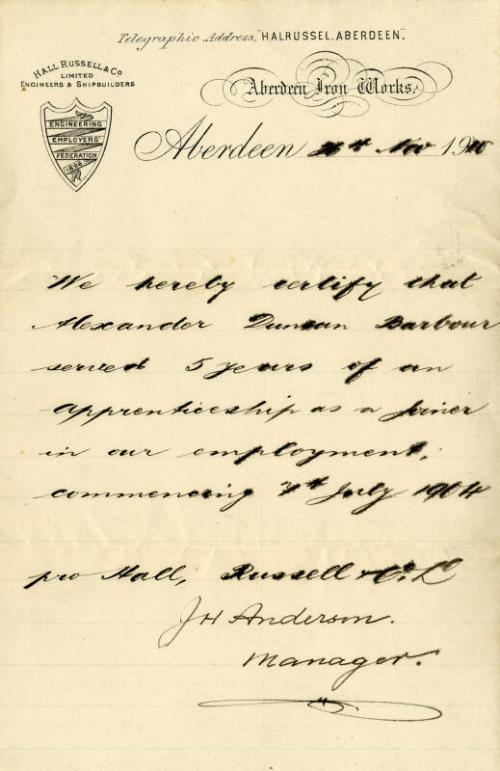 Telegraphic Address, "HALRUSSEL. ABERDEEN".
HALL RUSSELL & Co
LIMITED
ENGINEERS & SHIPBUILDERS
Aberdeen Iron Works.
ENGINEERING
EMPLOYERS
FEDERATION
1896
Aberdeen Nov 1910
We hereby certify that
Alexander Duncan Barbour
served 5 years of an
apprenticeship as a Joiner
in our employment,
commencing 7th July 1904
pro Hall, Russell & Co. Ld
JH Anderson.
Manager.